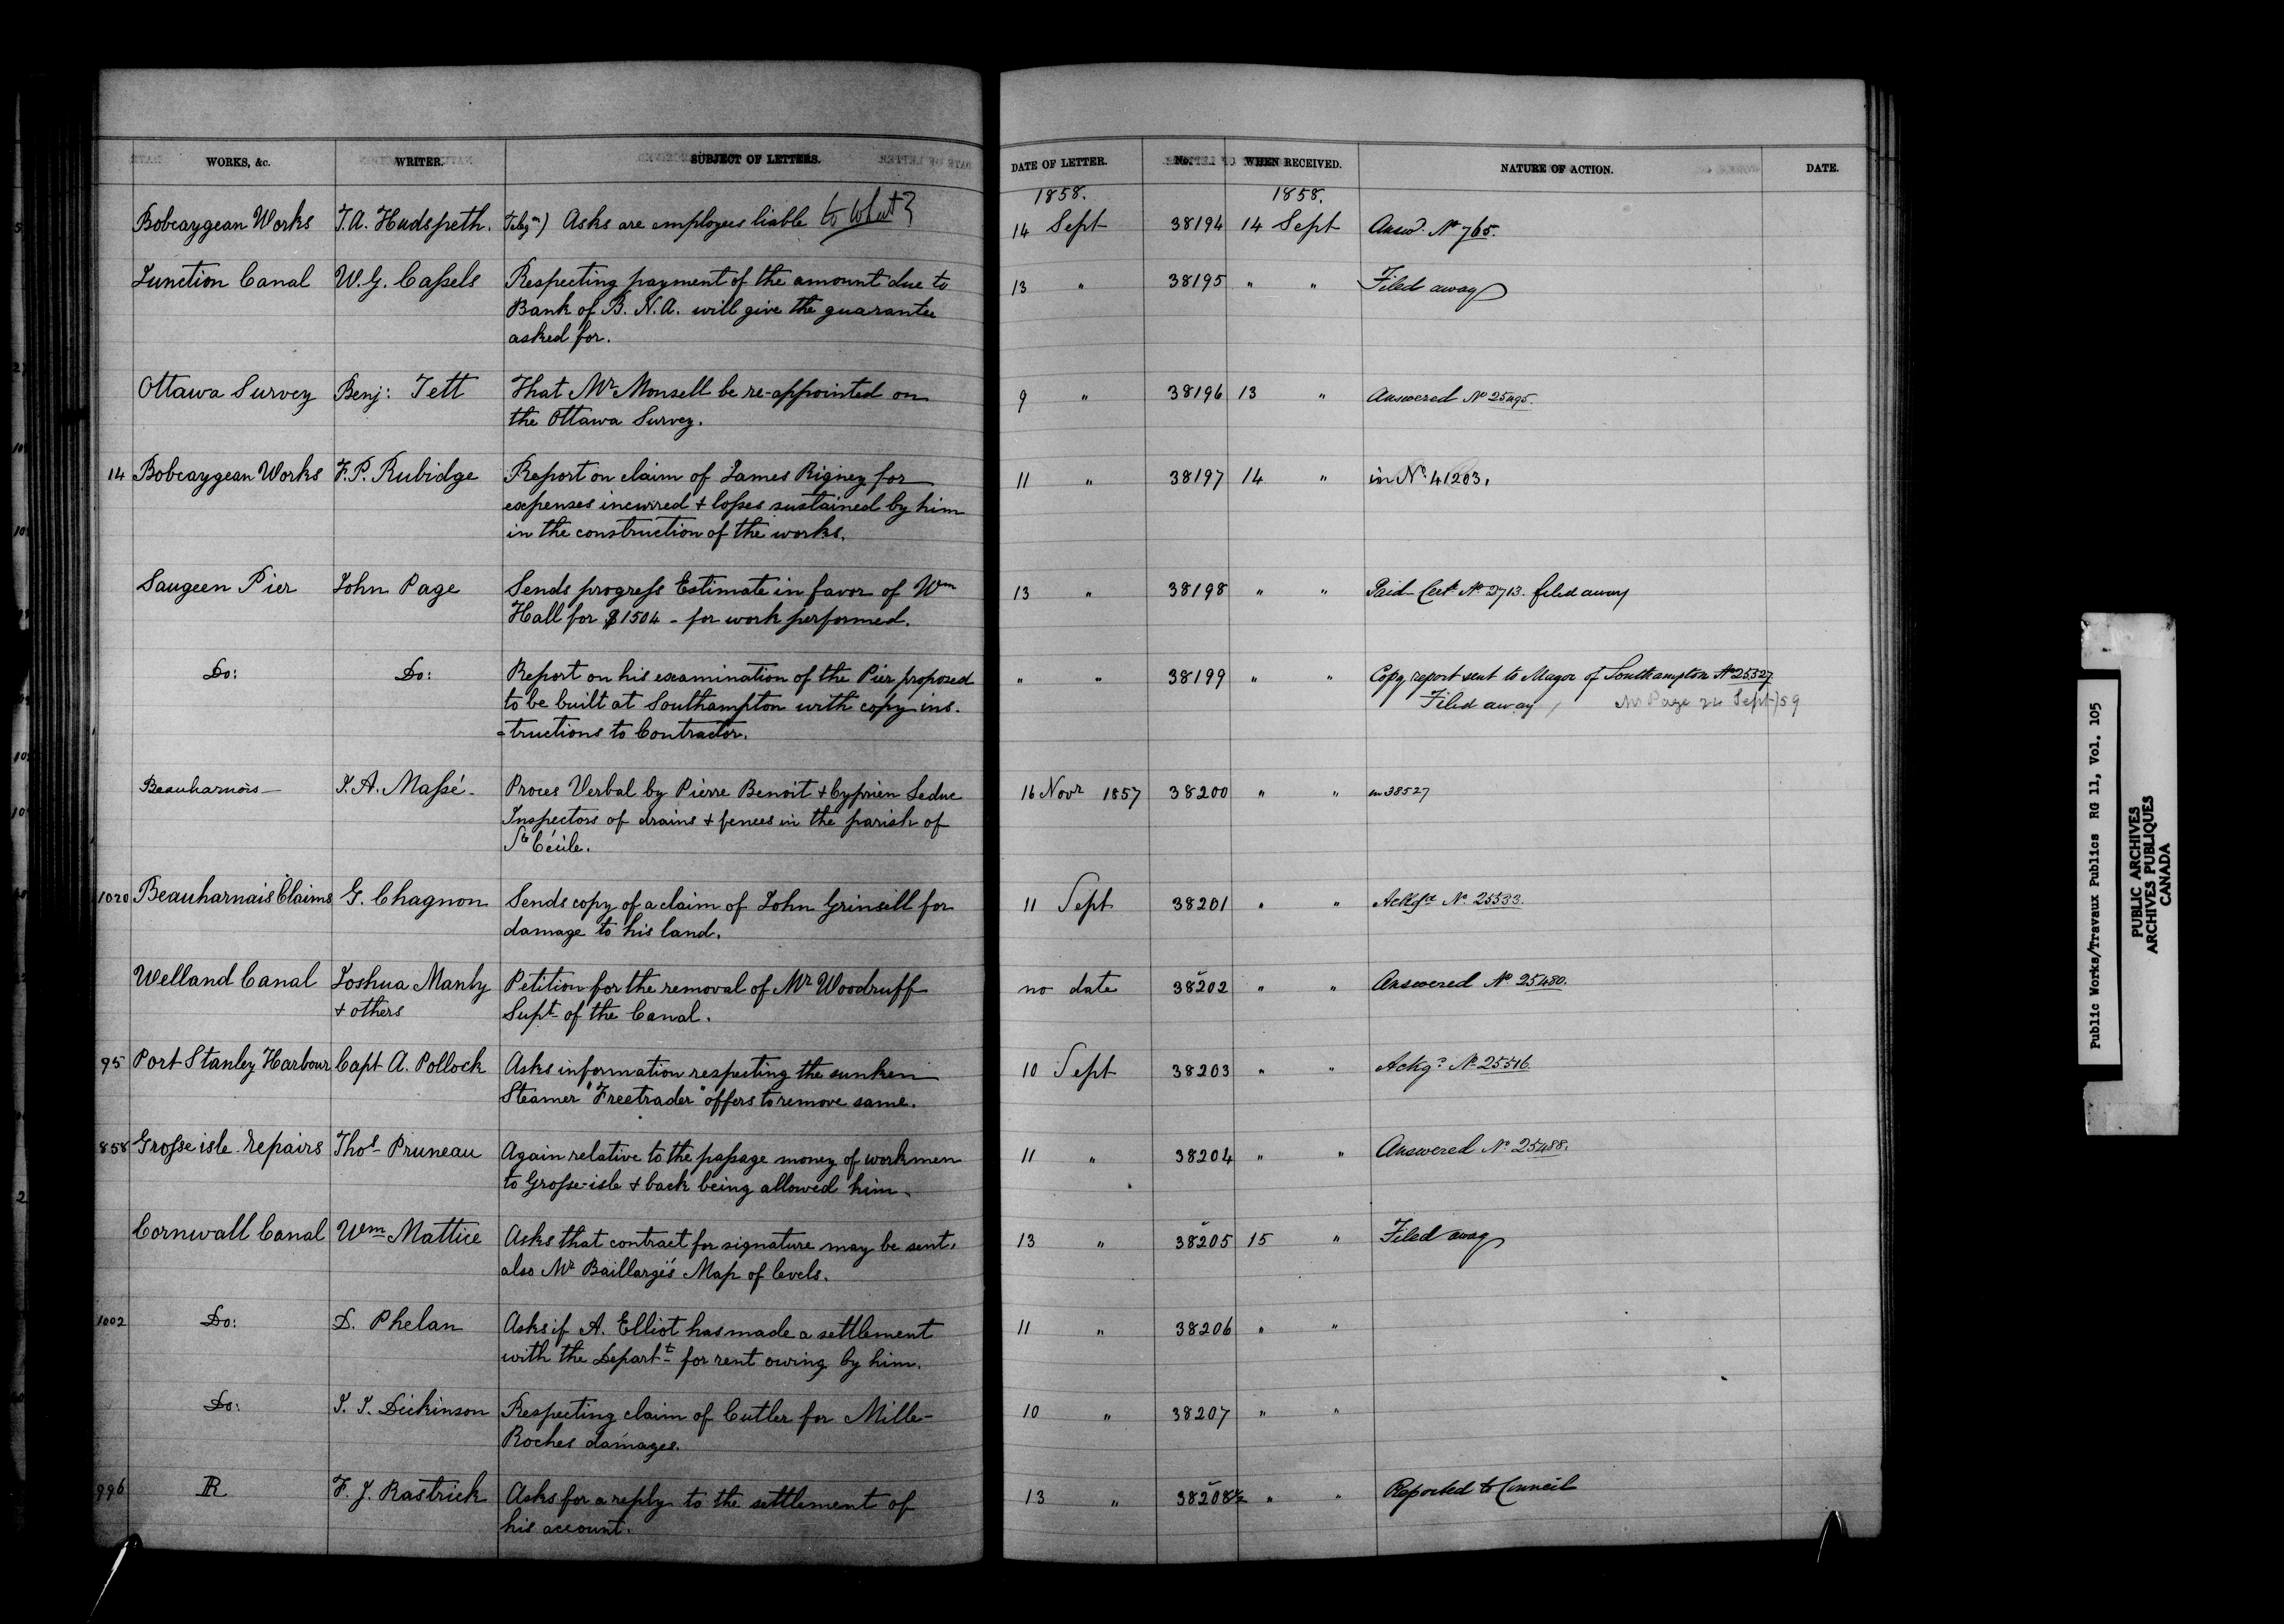 WORKS, &c. WRITER. SUBJECT OF LETTERS. DATE OF LETTER. No. WHEN RECEIVED. NATURE OF ACTION. DATE.
1858. 1858.
Bobcaygean Works T.A. Hudspeth. Telegm) Asks are employees liable to what? 14 Sept 38194 14 Sept Answd. No 765.
Junction Canal W.G. Cassels Respecting payment of the amount due to 13 " 38195 " " Filed away
Bank of B.N.A. will give the guarantee
asked for.
Ottawa Survey Benj: Tett That Mr Monsell be re-appointed on 9 " 38196 13 " Answered No 25495.
the Ottawa Survey.
14 Bobcaygean Works F.P. Rubidge Report on claim of James Rigney for 11 " 38197 14 " in No. 41203.
expenses incurred + losses sustained by him
in the construction of the works.
Saugeen Pier John Page Sends progress Estimate in favor of Wm 13 " 38198 " " Paid Cert. No 2713. filed away
Hall for $1504 - for work performed.
Do: Do: Report on his examination of the Pier proposed " " 38199 " " Copy report sent to Mayor of Southampton No 25327
to be built at Southampton with copy ins- Filed away, Mr Page 22 Sept/59
-tructions to Contractor.
Beauharnois - J.A. Massé - Proces Verbal by Pierre Benoit + Cyprien Leduc 16 Novr 1857 38200 " " in 38527
Inspectors of drains + fences in the parish of
Ste Cécile.
1020 Beauharnais Claims G. Chagnon Sends copy of a claim of John Grinsell for 11 Sept 38201 " " Ackge No. 25533.
damage to his land.
Welland Canal Joshua Manly Petition for the removal of Mr Woodruff no date 38202 " " Answered No 25480.
+ others Supt of the Canal.
95 Port Stanley Harbour Capt A. Pollock Asks information respecting the sunken 10 Sept 38203 " " Ackge No 25516
Steamer "Freetrader" offers to remove same.
858 Grosse isle repairs Thos Pruneau Again relative to the passage money of workmen 11 " 38204 " " Answered No 25488.
to Grosse-isle + back being allowed him.
Cornwall Canal Wm Mattice Asks that contract for signature may be sent. 13 " 38205 15 " Filed away
also Mr Baillargé's Map of levels.
1002 Do: D. Phelan Asks if A. Elliot has made a settlement 11 " 38206 " "
with the Departt for rent owing by him.
Do: J.J. Dickinson Respecting claim of Cutler for Mille- 10 " 38207 " "
Roches damages.
996 R F.J. Rastrick Asks for a reply to the settlement of 13 " 38208½ " " Reported to Council
his account.
Public Works/Travaux Publics RG 11, Vol. 105
PUBLIC ARCHIVES
ARCHIVES PUBLIQUES
CANADA